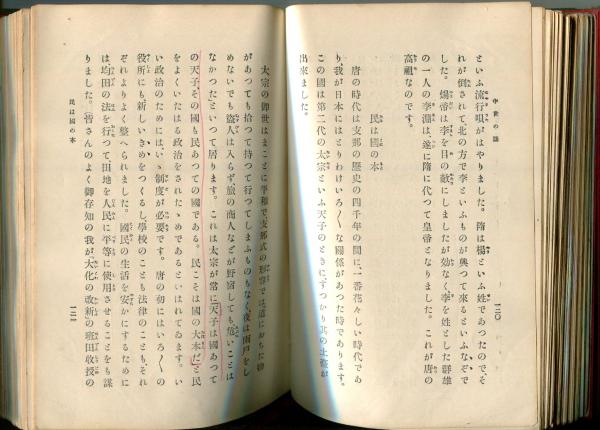 中世の話
一二〇
といふ流行唄がはやりました。隋は楊といふ姓であつたので、そ
れが倒されて、北の方で李といふものが興つて來るといふなぞで
した。煬帝は李を目の敵にしましたが効なく、李を姓とした群雄
の一人の李淵は、遂に隋に代つて皇帝となりました。これが唐の
高祖なのです。
民は國の本
唐の時代は支那の歴史の四千年の間に、一番花々しい時代であ
り、我が日本にはとりわけいろ〱な關係があつた時であります。
この國は第二代の太宗といふ天子のときにすつかり其の土臺が
出來ました。
太宗の御世はまことに平和で、支那式の形容では、道におちた物
があつても拾つて持つて行つてしまふものもなく、夜は雨戸をし
めないでも盜は入らず、旅の商人などが野宿しても危いことは
なかつたといつて居ります。これは太宗が常に「天子は國あつて
の天子、その國も民あつての國である。民こそは國の大本だ」と民
をよくいたはる政治をされたゝめであるといはれてゐます。い
い政治のためには、いゝ制度が必要です。唐の初にはいろ〱の
役所にも新しいきめをつくるし、學校のことも法律のことも、それ
ぞれよりよく整へられました。國民の生活を安かにするために
は、均田の法を行つて田地を人民に平等に使用させることをも謀
りました。皆さんのよく御存知の我が「大化の改新」の班田收授の
民は國の本
一二一